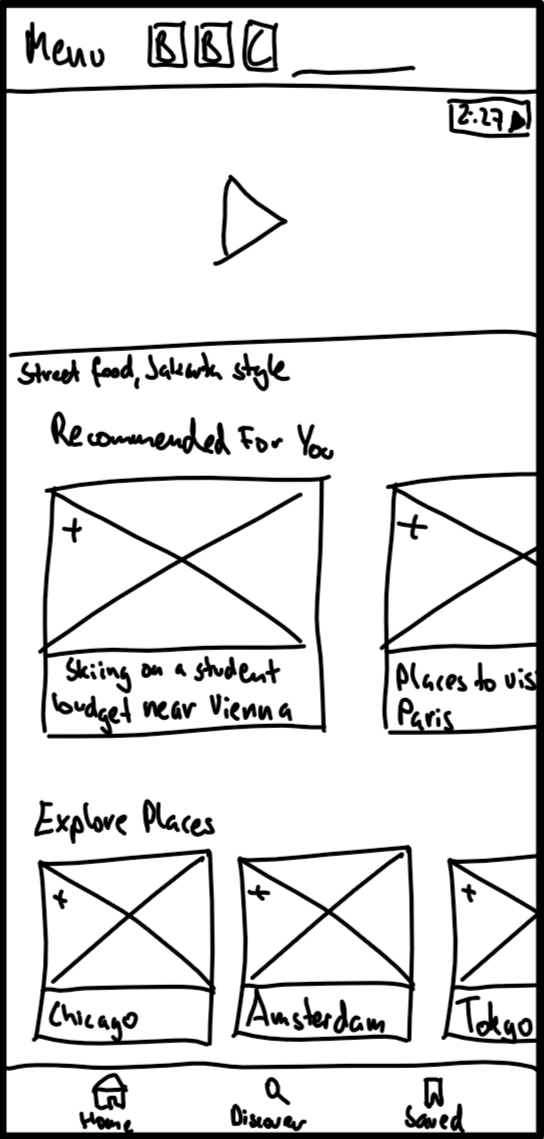 Menu B B C
2:27
Street food, Jakarta style
Recommended For You
+
+
Skiing on a student
budget near Vienna
Places to vis
Paris
Explore Places
+
+
+
Chicago
Amsterdam
Tokyo
Home
Discover
Saved